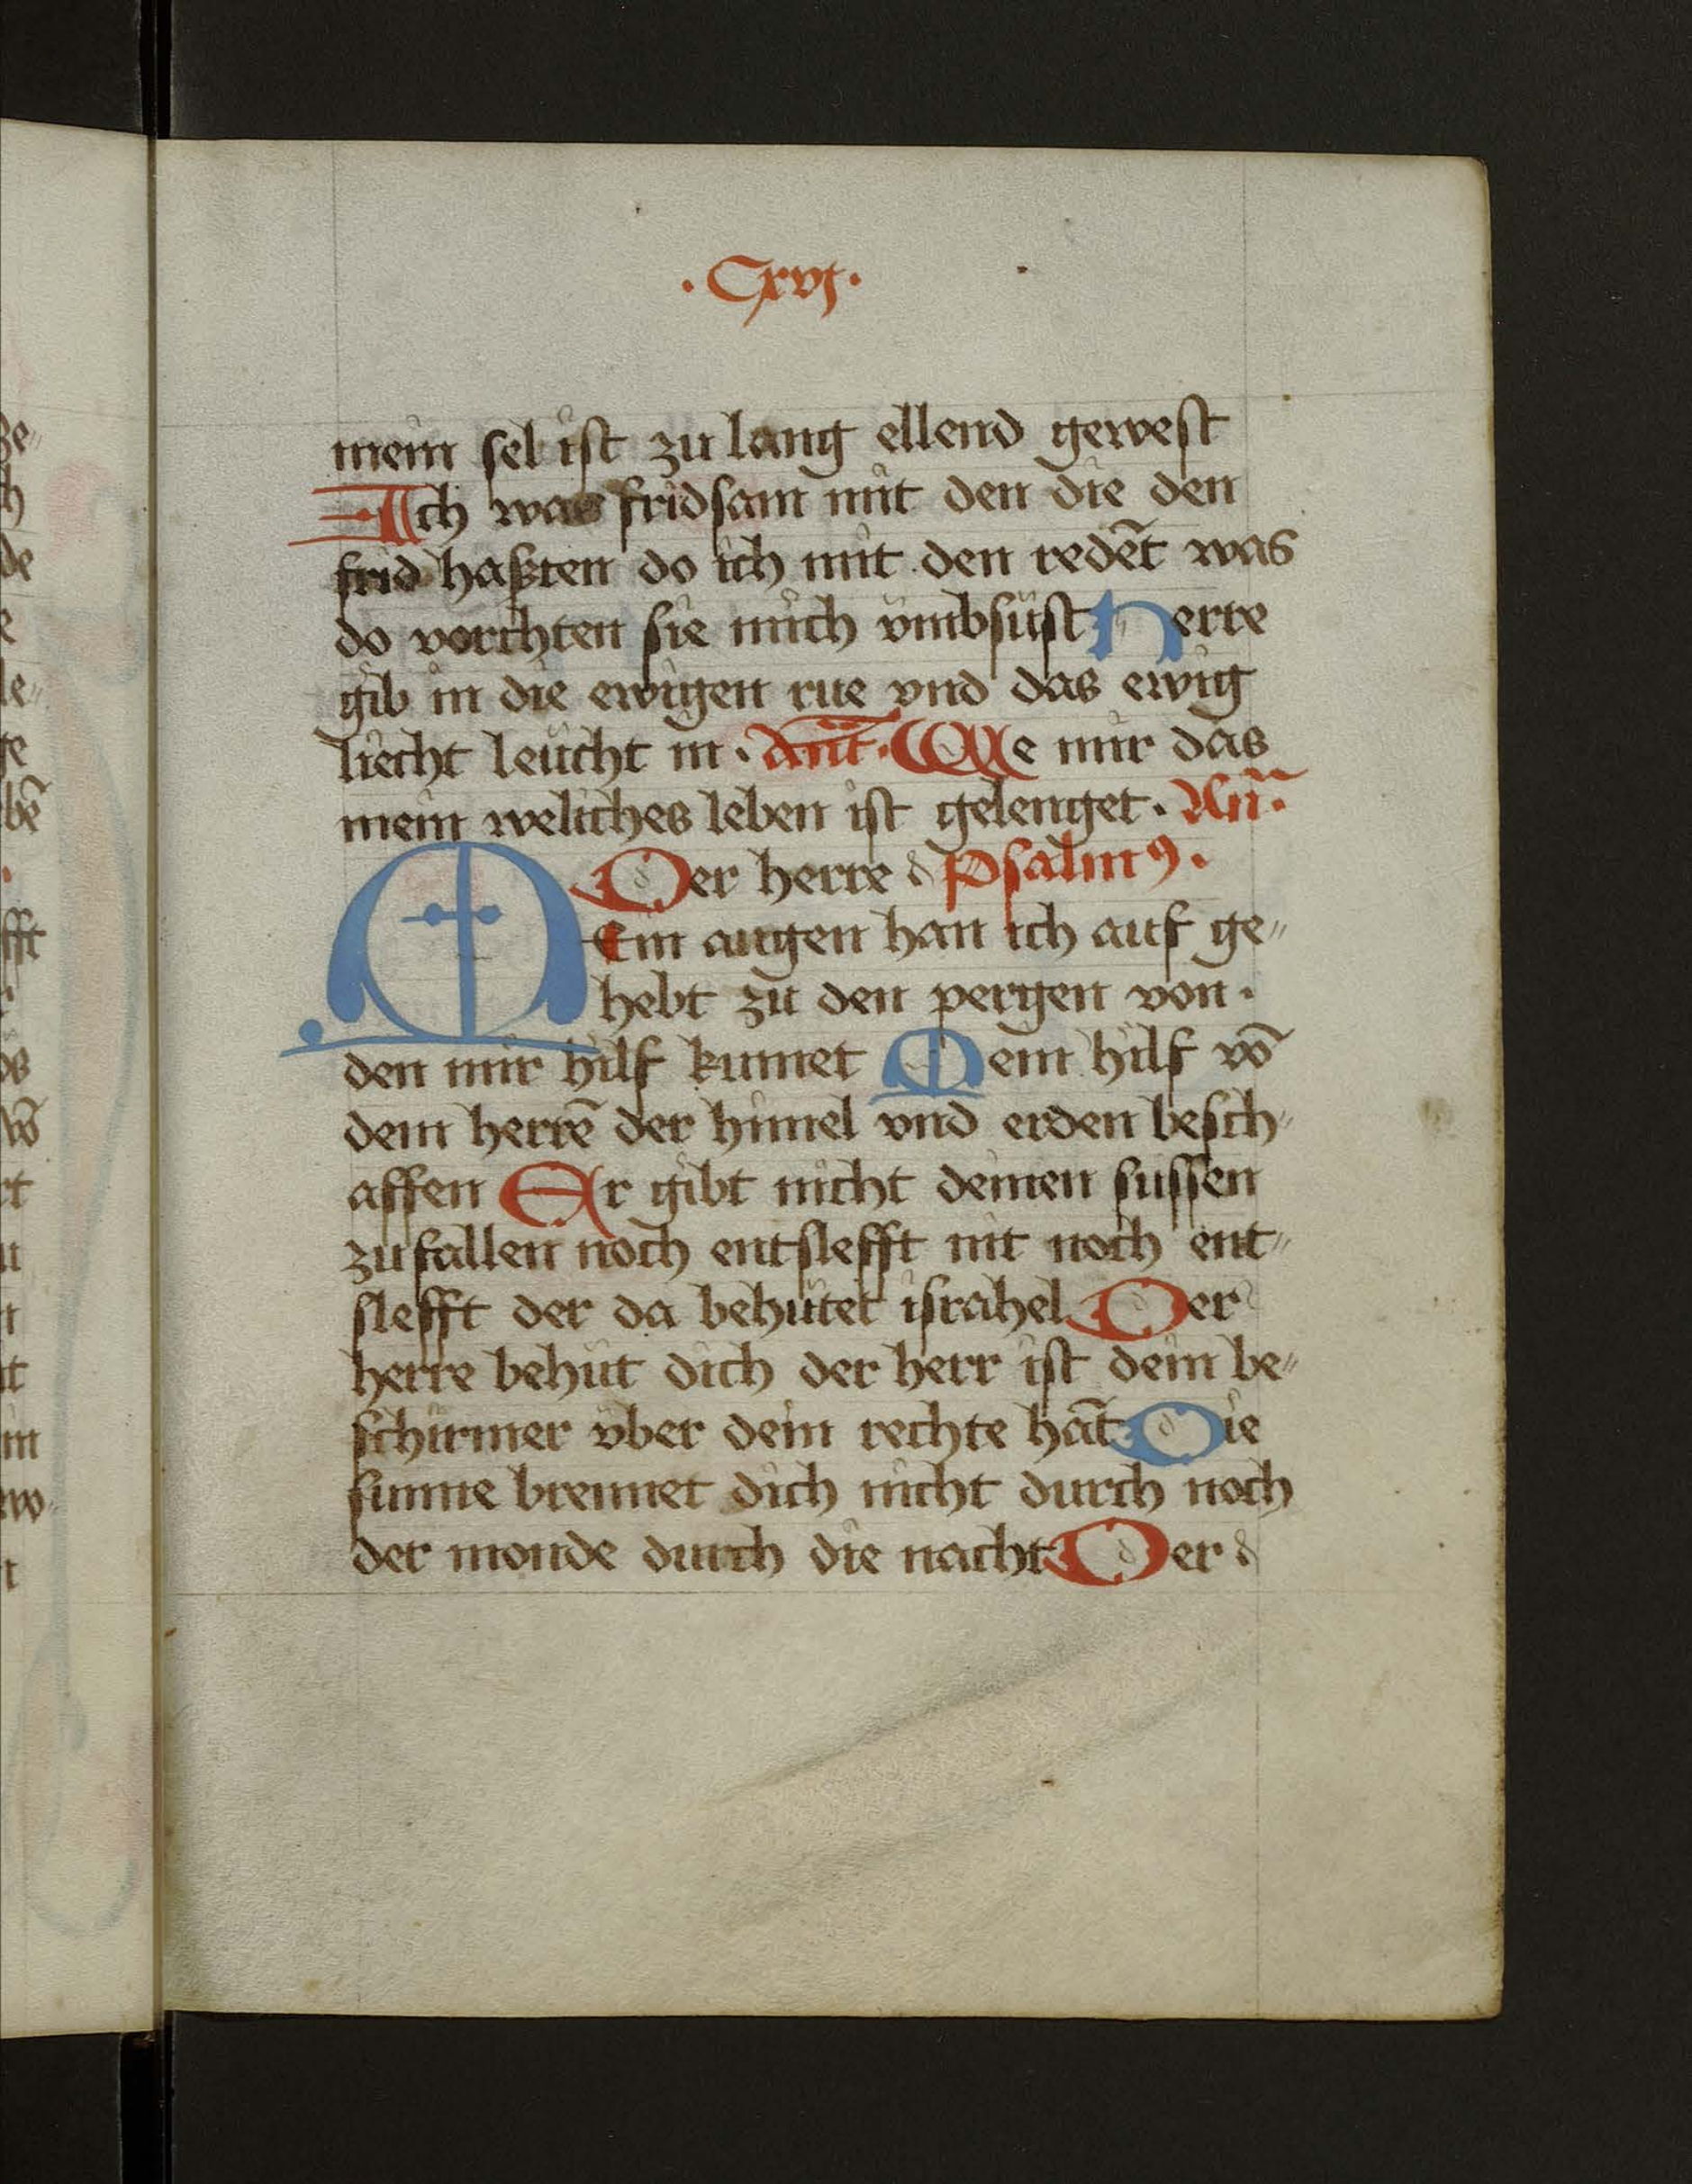 · Cxvj ·
mein sel ist zu lang ellend gewest
Ich was fridsam mit den die den
frid haßten do ich mit den redēt was
do vorchten sie mich vmbsüst herre
gib in die ewigen rue vnd das ewig
liecht leucht in · Ant̄ · We mir das
mein weliches leben ist gelenget · An̄ ·
Der herre d psalmꝰ ·
Mein augen han ich auf ge„
hebt zu den pergen von ·
den mir hilf kumet Mein hilf vō
dem herrē der himel vnd erden besch„
affen Er gibt nicht deinen fussen
zufallen noch entslefft nit noch ent„
slefft der da behütet israhel Der
herre behüt dich der herr ist dein be„
schirmer vber dein rechte hāt Die
sunne brennet dich nicht durch noch
der monde durch die nacht Der